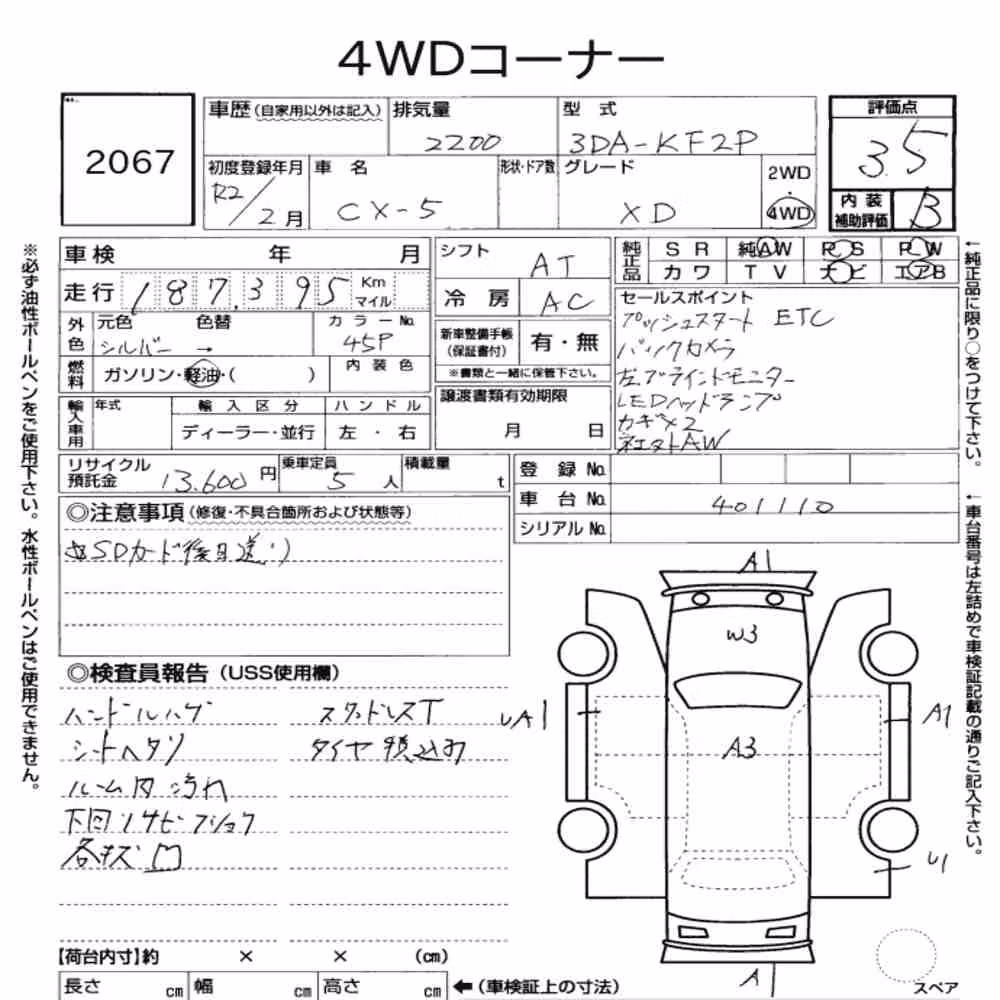 4WDコーナー
2067
車歴(自家用以外は記入) 排気量 2200 型式 3DA-KF2P 評価点 3.5
初度登録年月 R2/2月 車名 CX-5 形状・ドア数 グレード XD 2WD・4WD 内装補助評価 B
車検 年 月 シフト AT 純正品 SR 純AW PS PW
走行 187,395 Km マイル 冷房 AC カワ TV ナビ エアB
外色 元色 シルバー → 色替 カラーNo. 45P 新車整備手帳(保証書付) 有・無
※書類と一緒に保管下さい。
燃料 ガソリン・軽油・( ) 内装色
譲渡書類有効期限 月 日
輸入車用 年式 輸入区分 ディーラー・並行 ハンドル 左・右
セールスポイント
プッシュスタート ETC
バックカメラ
左ブラインドモニター
LEDヘッドランプ
カギ×2
社エタトAW
リサイクル預託金 13,600円 乗車定員 5人 積載量 t
登録No.
車台No. 401110
シリアルNo.
◎注意事項(修復・不具合箇所および状態等)
SDカード後日送り
◎検査員報告(USS使用欄)
ハンドルハゲ スタッドレスT
シートヘタリ タイヤ積込み
ルーム内汚れ
下回りサビ
各キズ凹
A1
W3
A3
UA1
A1
U1
A1
スペア
【荷台内寸】約 × × (cm)
長さ cm 幅 cm 高さ cm ←(車検証上の寸法)
※必ず油性ボールペンをご使用下さい。水性ボールペンはご使用できません。
←純正品に限り○をつけて下さい。
←車台番号は左詰めで車検証記載の通りご記入下さい。